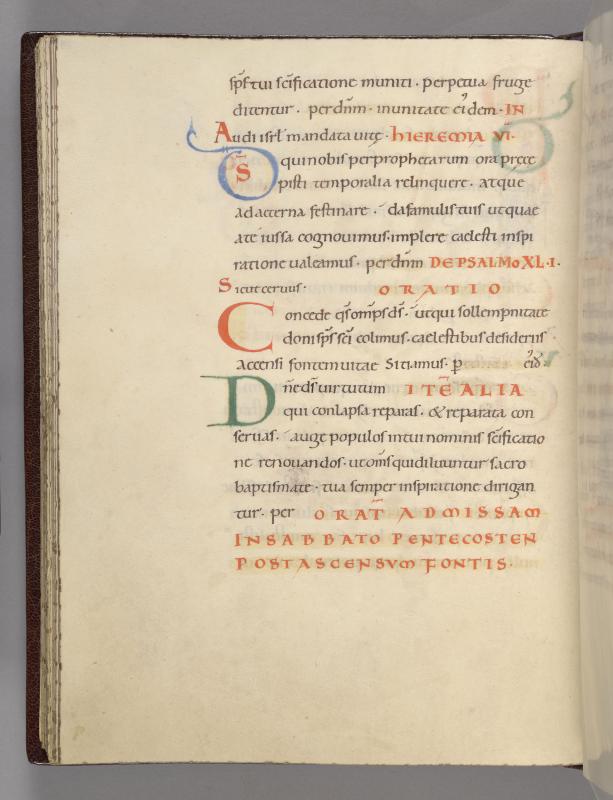 sp̄s tui sc̄ificatione muniti · perpetua fruge
ditentur · per dnm̄ · inunitate eiꝰdem · IN
Audi isrl̄ mandata uitę · hIEREMIA VI ·
Ds̄ qui nobis per prophetarum ora prece
pisti temporalia relinquere · atque
ad aeterna festinare · da famulis tuis ut quae
a te iussa cognouimus · implere caelesti inspi
ratione ualeamus · per dnm̄ DE PSALMO XL · I ·
Sicut ceruus · ORATIO
Concede qs̄ omp̄s ds̄ · ut qui sollempnitate
doni sp̄s sc̄i colimus · caelestibus desideriis
accensi fontem uitae sitiamus · p̄ eiꝰd ·
Dn̄e ds̄ uirtutum ITĒ ALIA
qui conlapsa reparas · & reparata con
seruas · auge populos in tui nominis sc̄ificatio
ne renouandos · ut om̄s qui diluuntur sacro
baptismate · tua semper inspiratione dirigan
tur · per ORAT̄ AD MISSAM
IN SABBATO PENTECOSTEN
POST ASCENSVM FONTIS ·